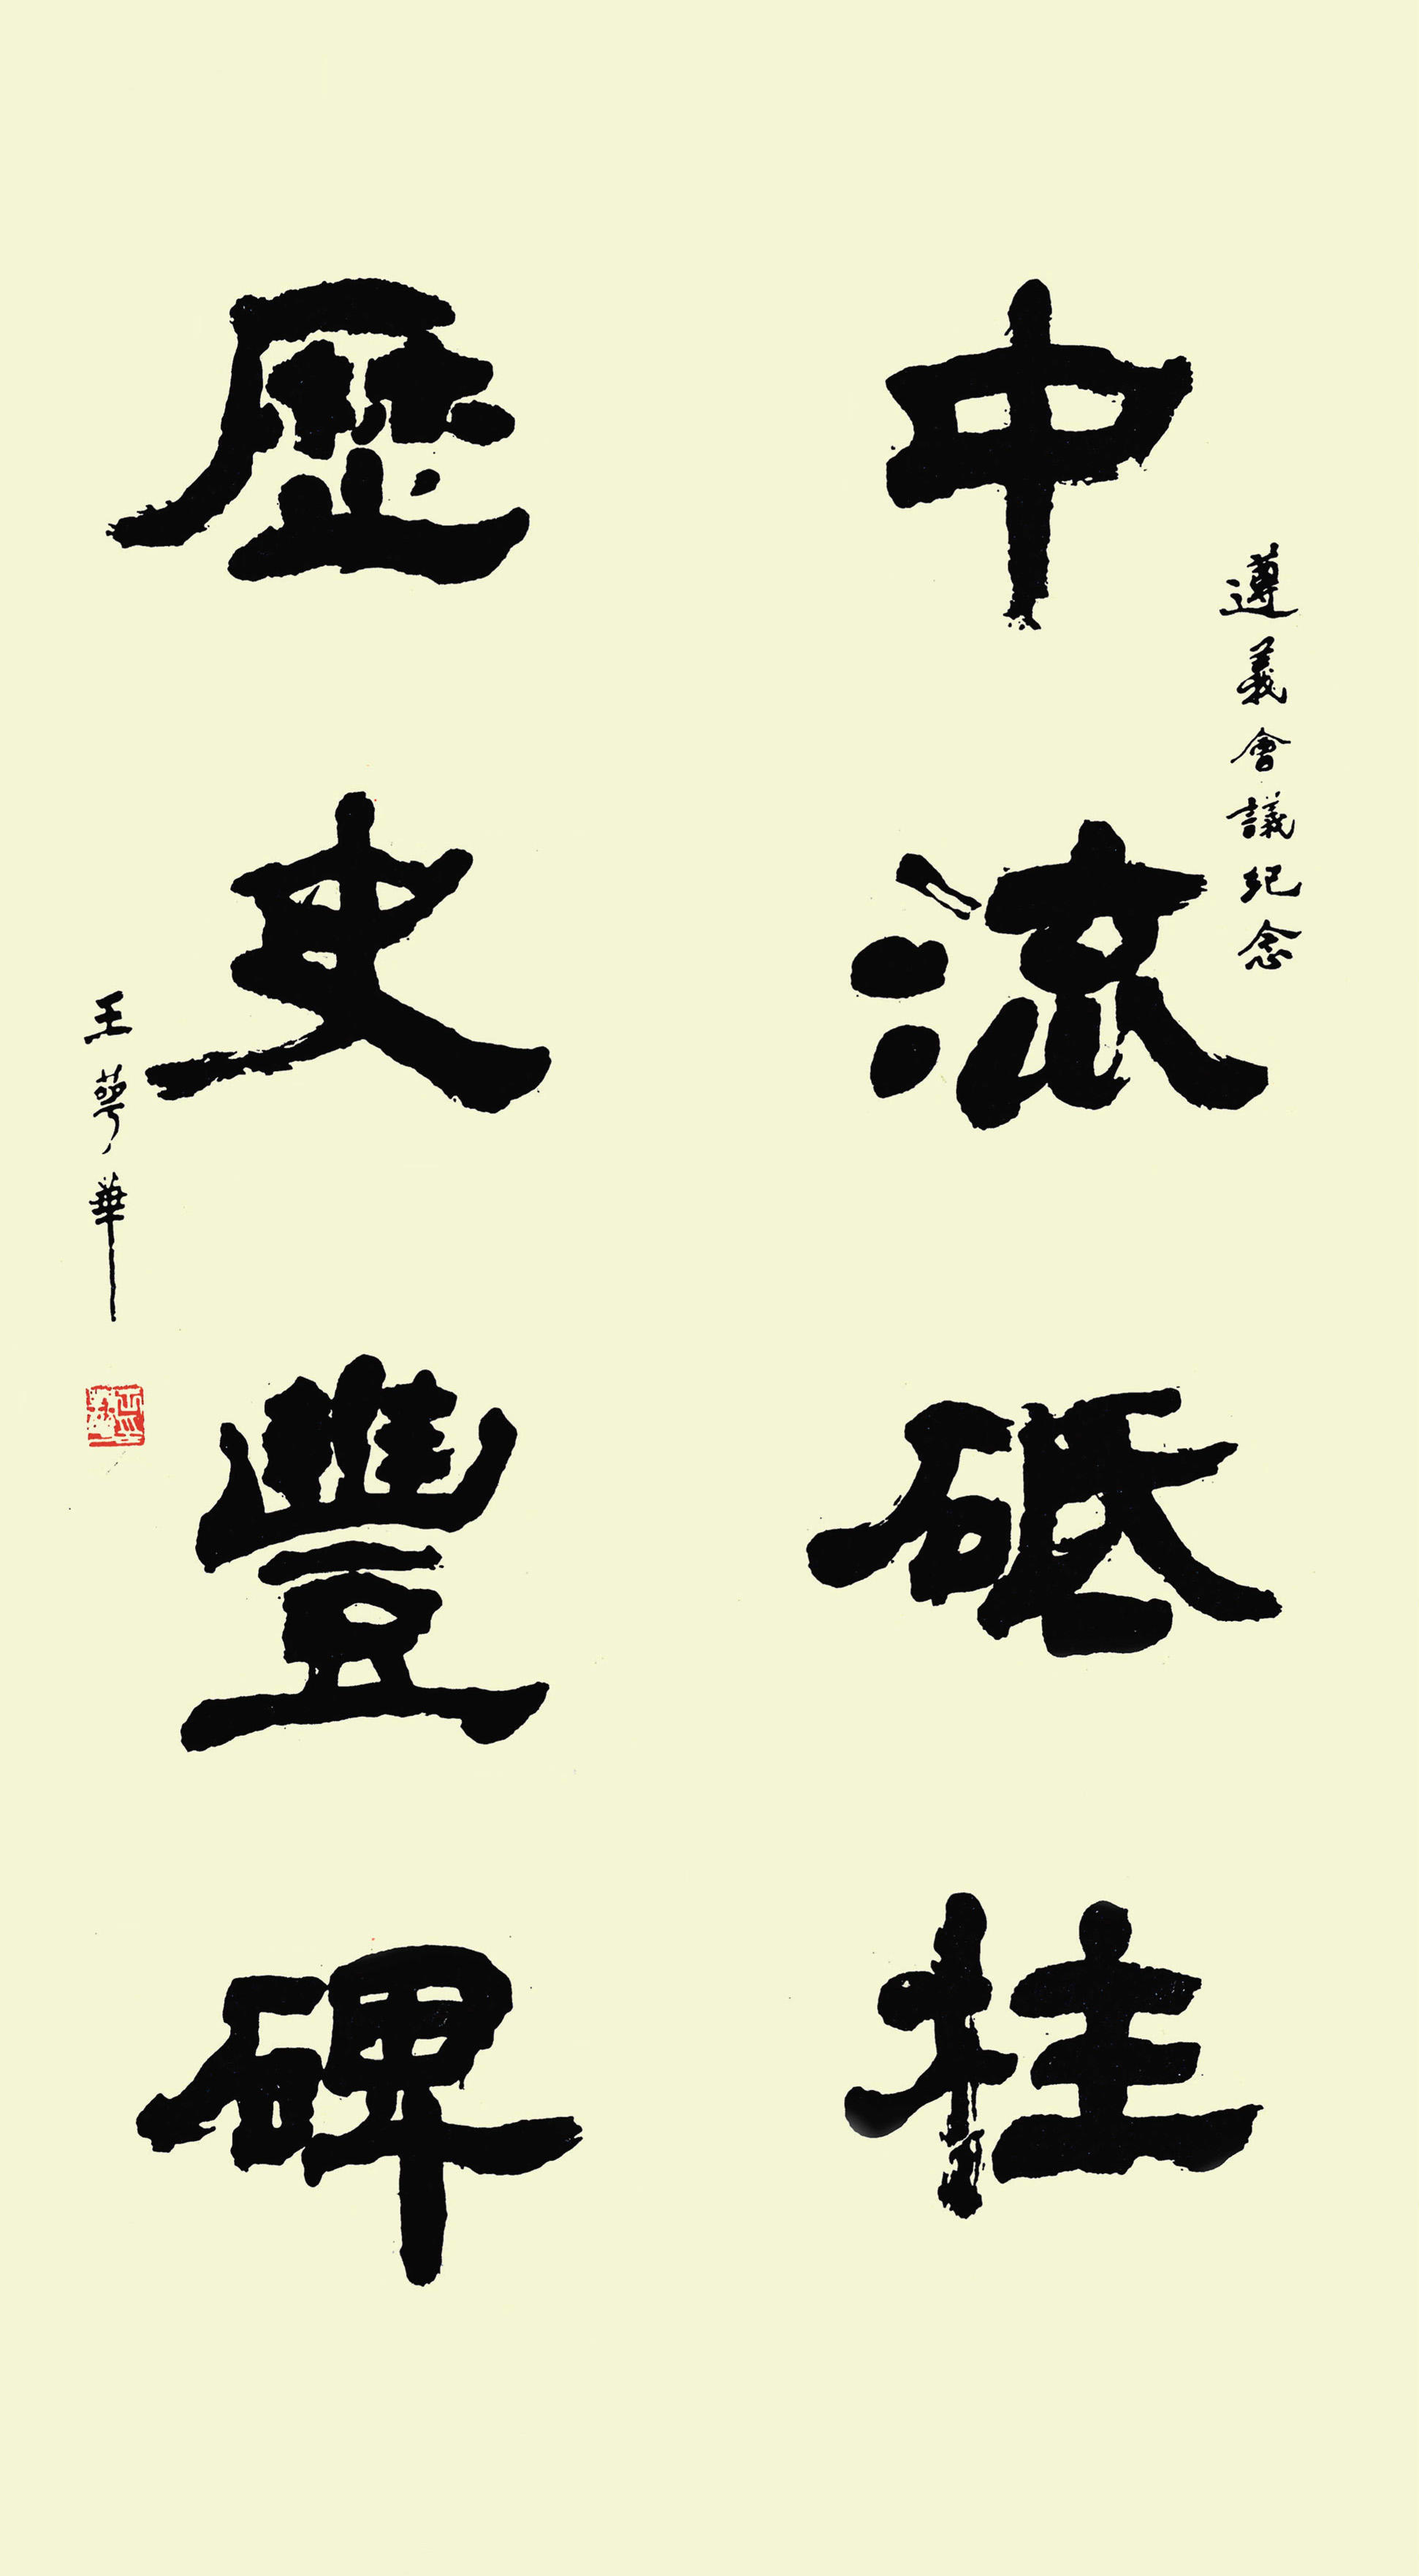 遵義會議紀念
中流砥柱
歷史豐碑
王萼華